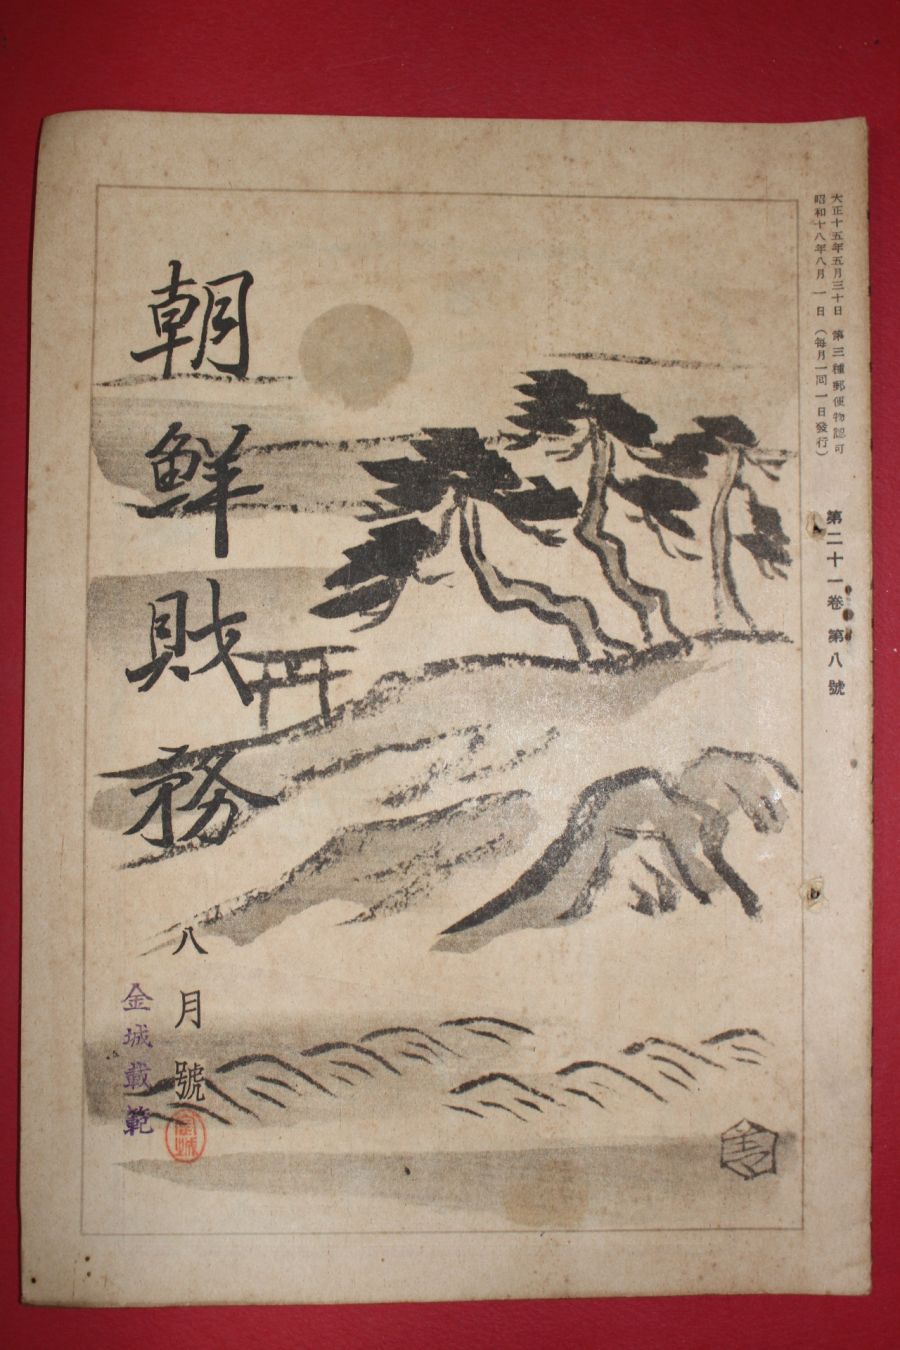 大正十五年五月三十日 第三種郵便物認可
昭和十八年八月一日（毎月一回一日發行）
第二十一卷 第八號
朝鮮財務
八月號
金城載範
金城